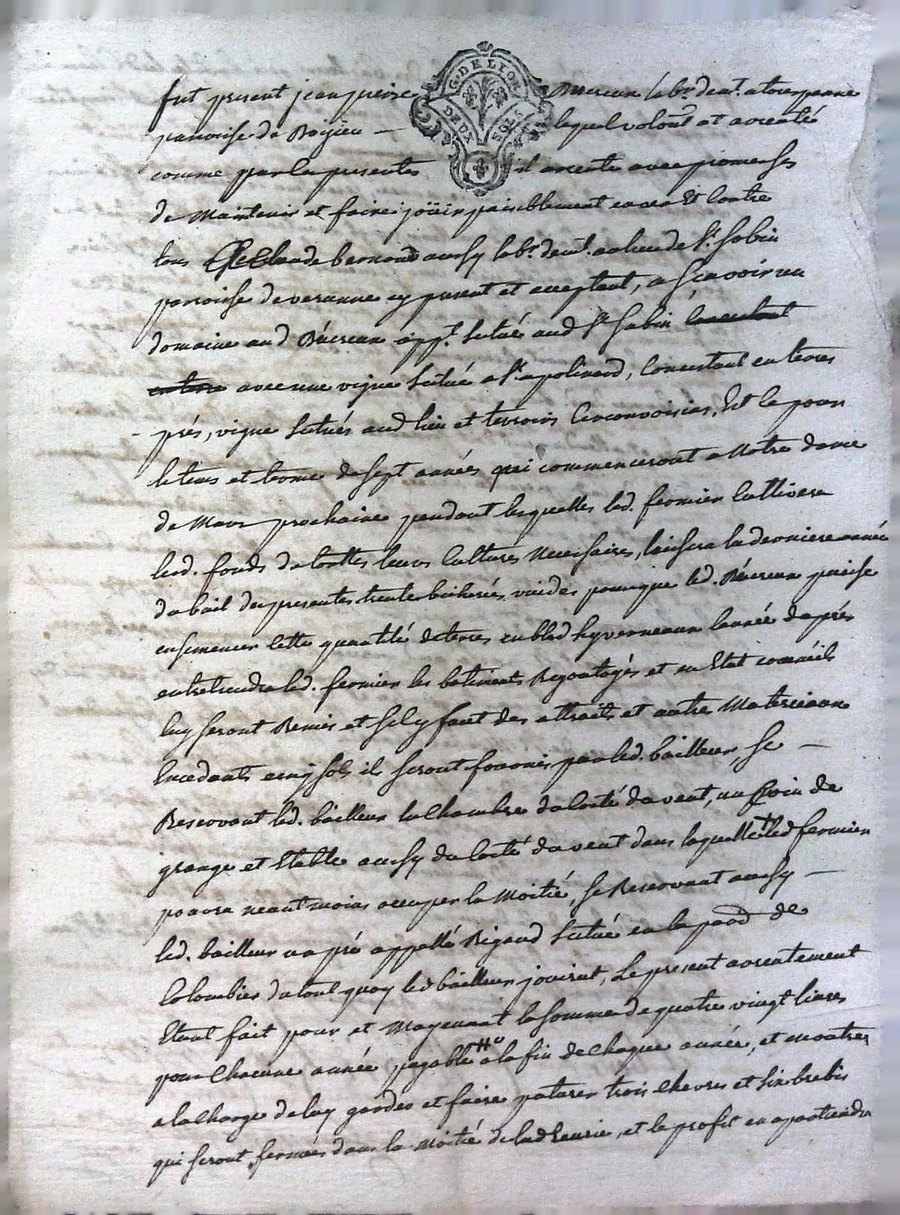 G. DE LYON
DEUX SOLS
fut present jean pierre Réverceau lab.r dem.t a tourpane
paroisse de Roisieu — lequel volont.t at arrenté
comme par les presentes il arrente avec promesse
de maintenir et faire joüir paisiblement envers et contre
tous A Claude bernard aussy lab.r dem.t au lieu de S.t Sabin
paroisse de veranne cy present et acceptant, a scavoir un
domaine aud app.t situé aud S.t Sabin
avec une vigne située a S.t apolinard, Consistant en terres
prés, vigne situés aud lieu et terroirs Circonvoisins, Est ce pour
le tems et terme de sept années qui commenceront a Notre dame
de Mars prochaine pendant lesquelles led. fermier Cultivera
lesd. fonds de touttes leurs Cultures Necessaires, laissera la derniere année
du bail des presentes trente bicherées vuides pour que led. puisse
ensemencer cette quantité de terres en bled hyverneaux lannée daprés
entretiendra led. fermier les batiment Regoutoyés et en Etat comm'ils
luy seront Remis et sil y faut des attraits et autre Materieaux
Excedants cinq sols il seront fournis par led. bailleur, se —
Reservant led. bailleur la chambre du Costé du vent, un Coin de
grange et Etable aussy du Costé du vent dans laquelle led fermier
pourra neantmoins occuper la Moitié, se Reservant aussy —
led. bailleur un pré appellé Rigaud situé en la parr de
Colombier du tout quoy led bailleur jouirat, Le present arrentement
Etant fait pour et Moyennant la somme de quatre vingt livres
pour Chacune année payable a la fin de chaque année, et en outre
a la charge de luy garder et faire paturer trois chevres et six brebis
qui seront fermées dans la moitié de lad Ecurie, et le profit en apartiendra